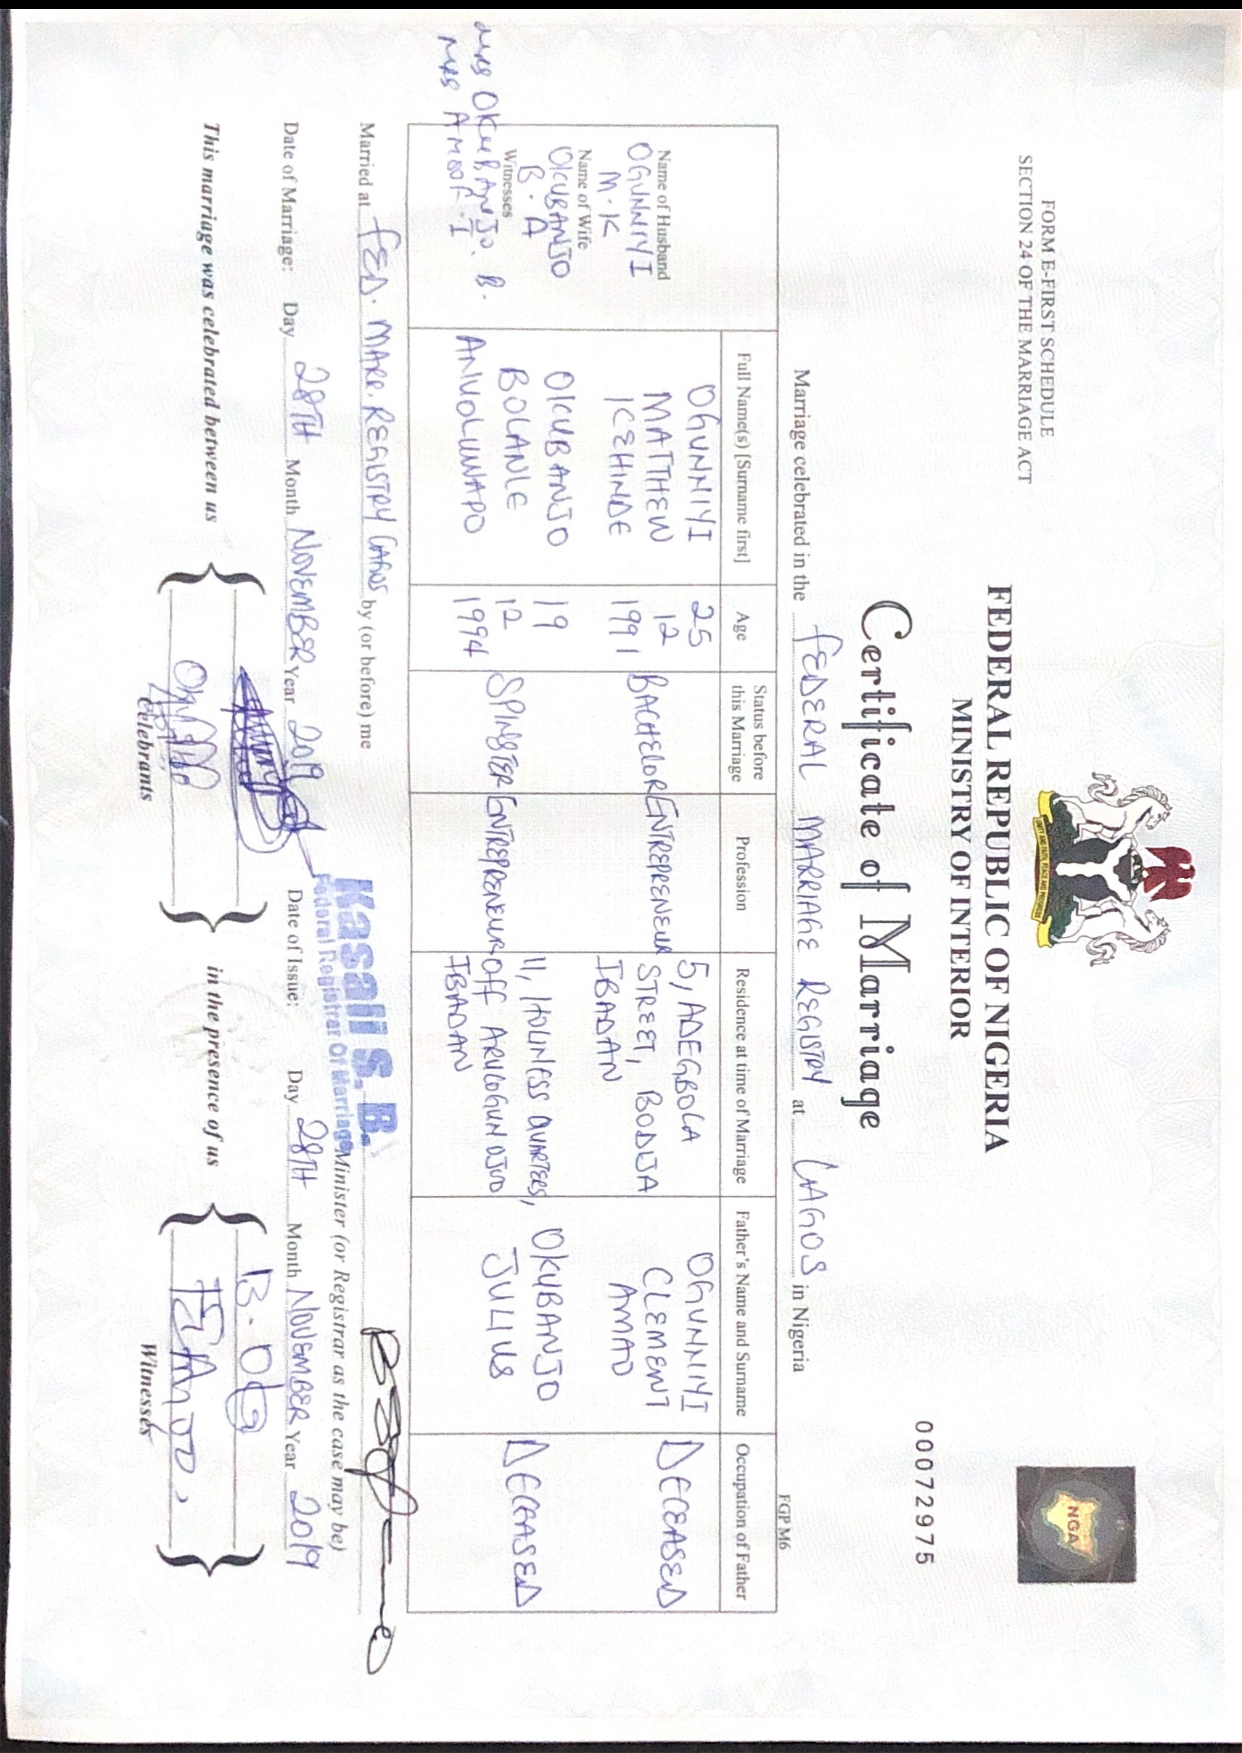 FORM E-FIRST SCHEDULE
SECTION 24 OF THE MARRIAGE ACT
NGA
FEDERAL REPUBLIC OF NIGERIA
MINISTRY OF INTERIOR
00072975
Certificate of Marriage
Marriage celebrated in the FEDERAL MARRIAGE REGISTRY at LAGOS in Nigeria
FGP M6
Full Name(s) [Surname first]
Age
Status before this Marriage
Profession
Residence at time of Marriage
Father's Name and Surname
Occupation of Father
Name of Husband
OGUNNIYI
M.K
OGUNNIYI
MATTHEW
KEHINDE
25
12
1991
BACHELOR
ENTREPRENEUR
5, ADEGBOLA
STREET, BODIJA
IBADAN
OGUNNIYI
CLEMENT
AMAO
DECEASED
Name of Wife
OKUBANJO
B.A
OKUBANJO
BOLANLE
ANUOLUWAPO
19
12
1994
SPINSTER
ENTREPRENEUR
11, HOLINESS QUARTERS,
OFF ARULOGUN OJOO
IBADAN
OKUBANJO
JULIUS
DECEASED
Witnesses
MRS OKUBANJO. B.
MRS AMOO F.I
Married at FED. MARR. REGISTRY LAGOS by (or before) me
Kasali S. B.
Federal Registrar Of Marriage
Minister (or Registrar as the case may be)
Date of Marriage: Day 28TH Month NOVEMBER Year 2019 Date of Issue: Day 28TH Month NOVEMBER Year 2019
This marriage was celebrated between us
Celebrants
in the presence of us
Witnesses